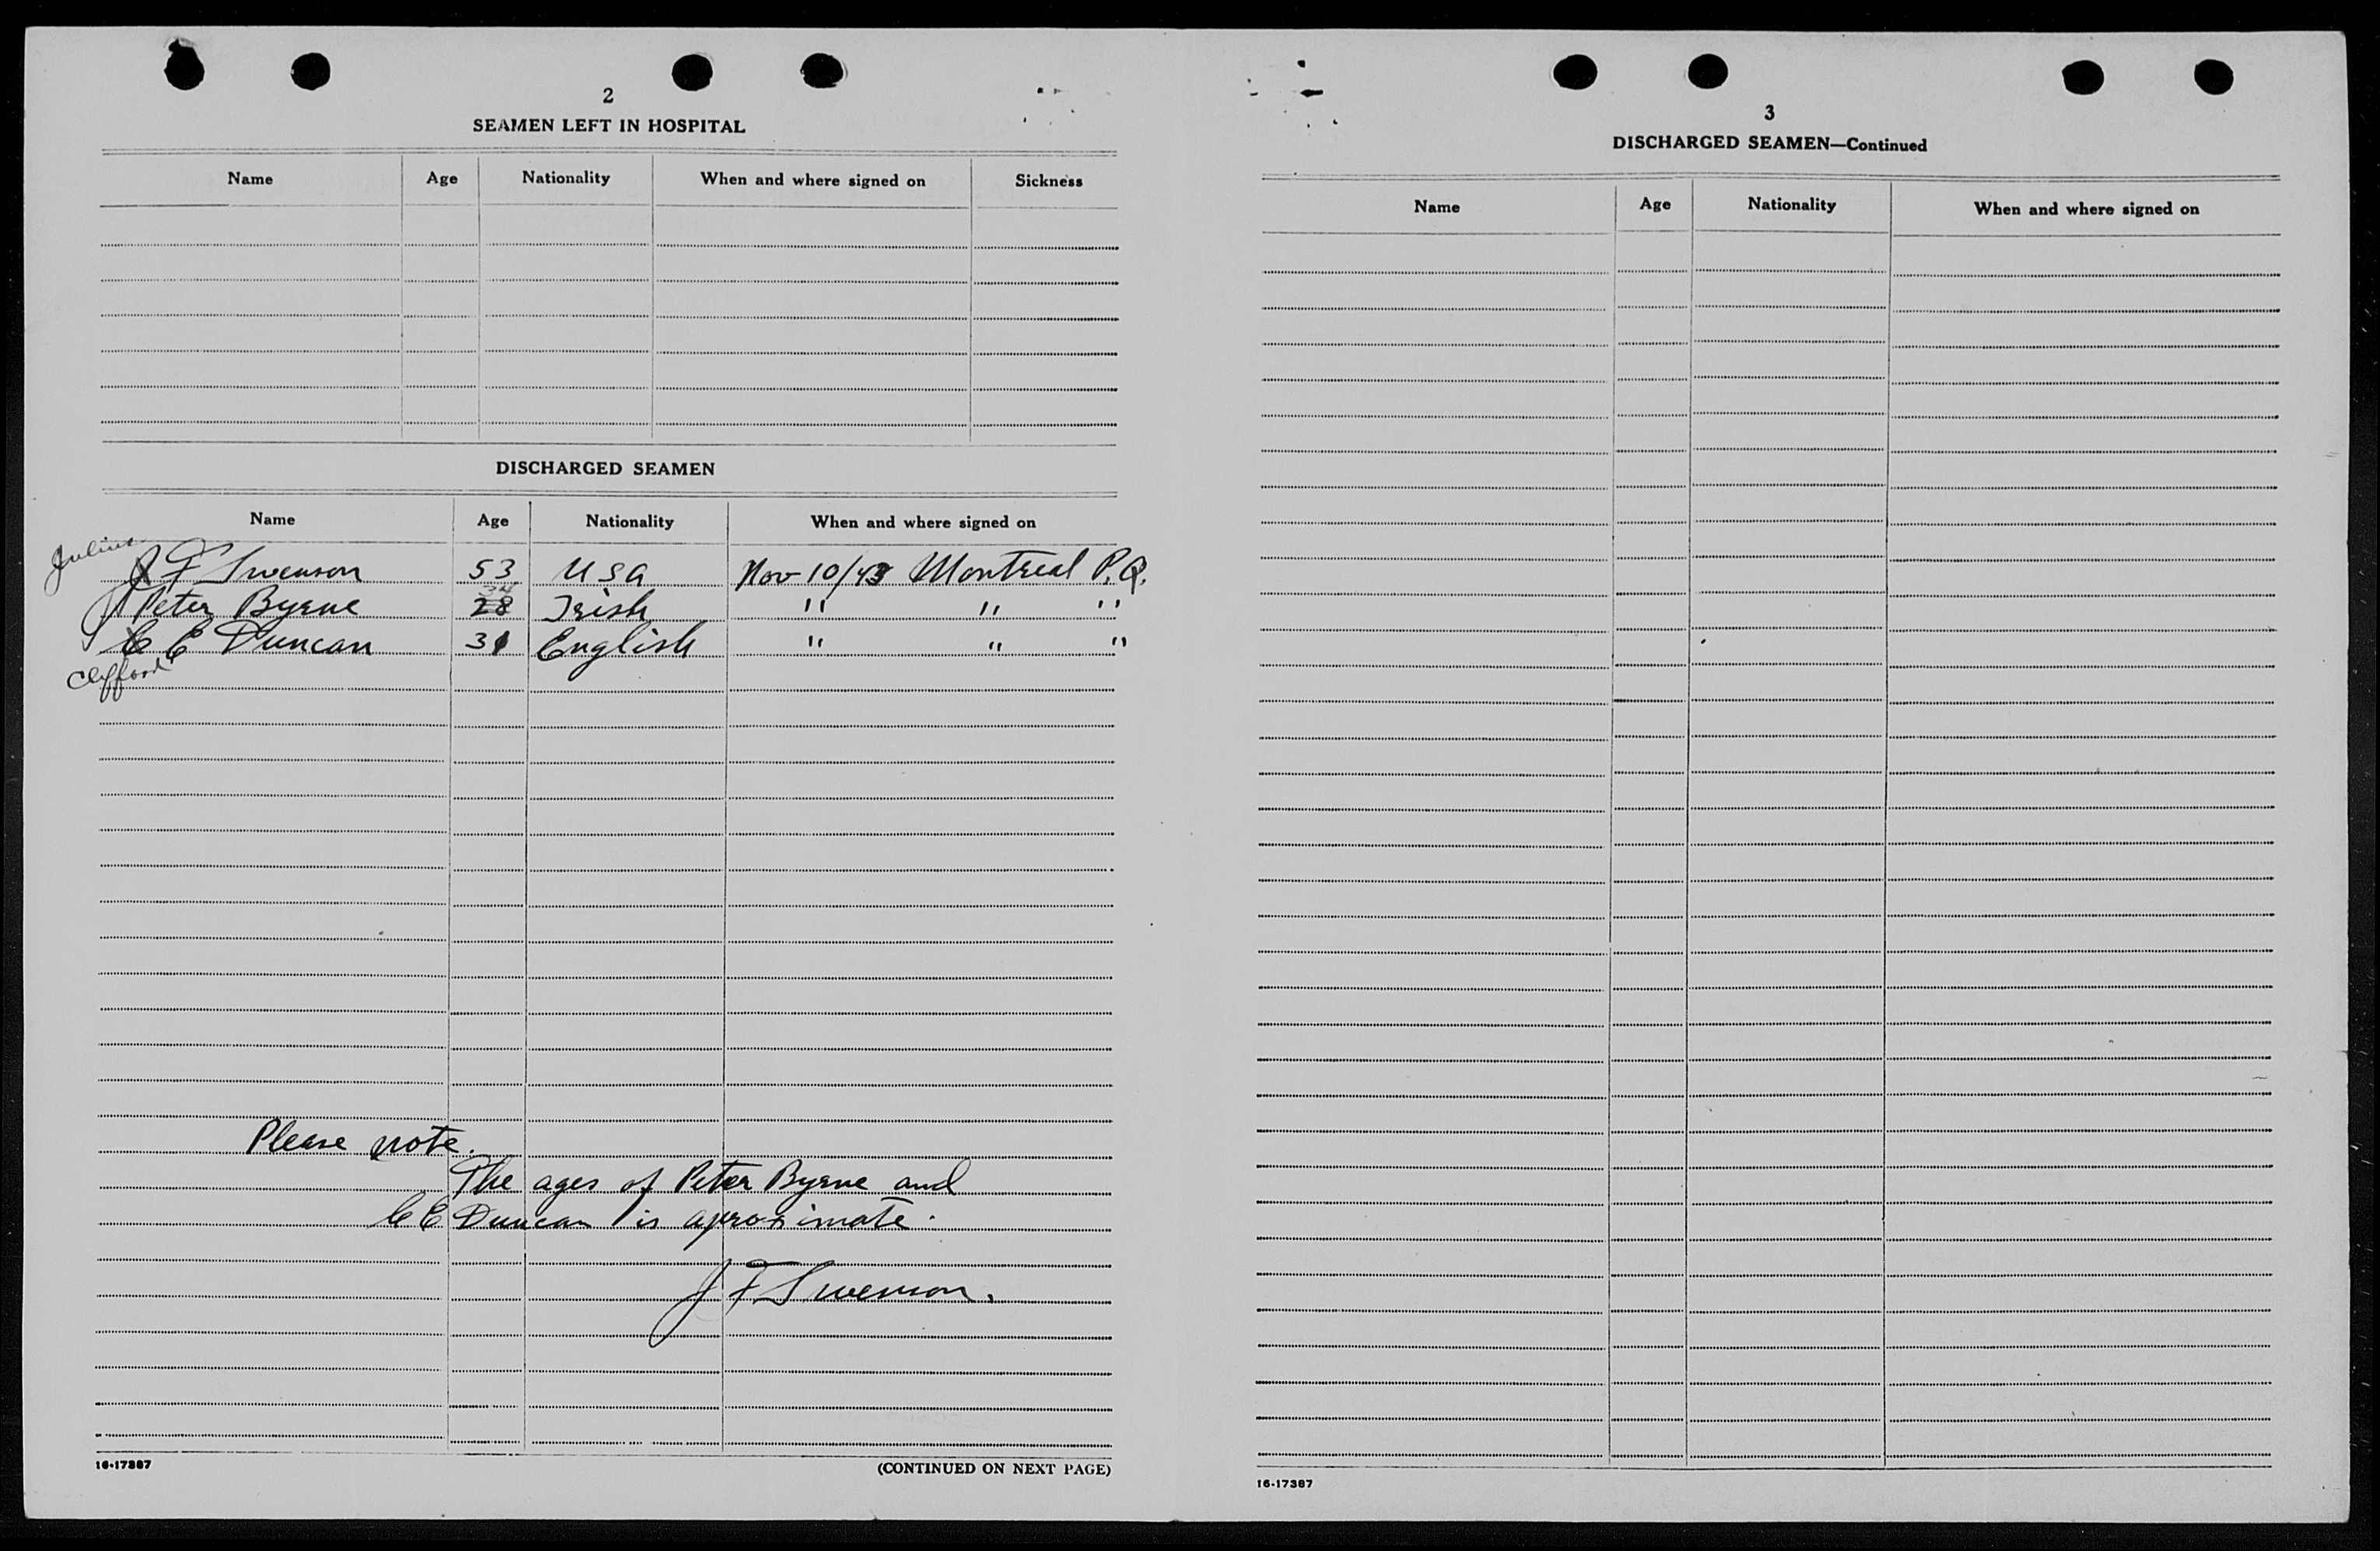 2
SEAMEN LEFT IN HOSPITAL
Name Age Nationality When and where signed on Sickness
DISCHARGED SEAMEN
Name Age Nationality When and where signed on
Julius
J F Swenson 53 USA Nov 10/43 Montreal P.Q.
34
Peter Byrne 28 Irish " " "
C C Duncan 31 English " " "
Clifford
Please note.
The ages of Peter Byrne and
C C Duncan is aproximate.
J F Swenson.
16-17387
(CONTINUED ON NEXT PAGE)
3
DISCHARGED SEAMEN—Continued
Name Age Nationality When and where signed on
16-17387